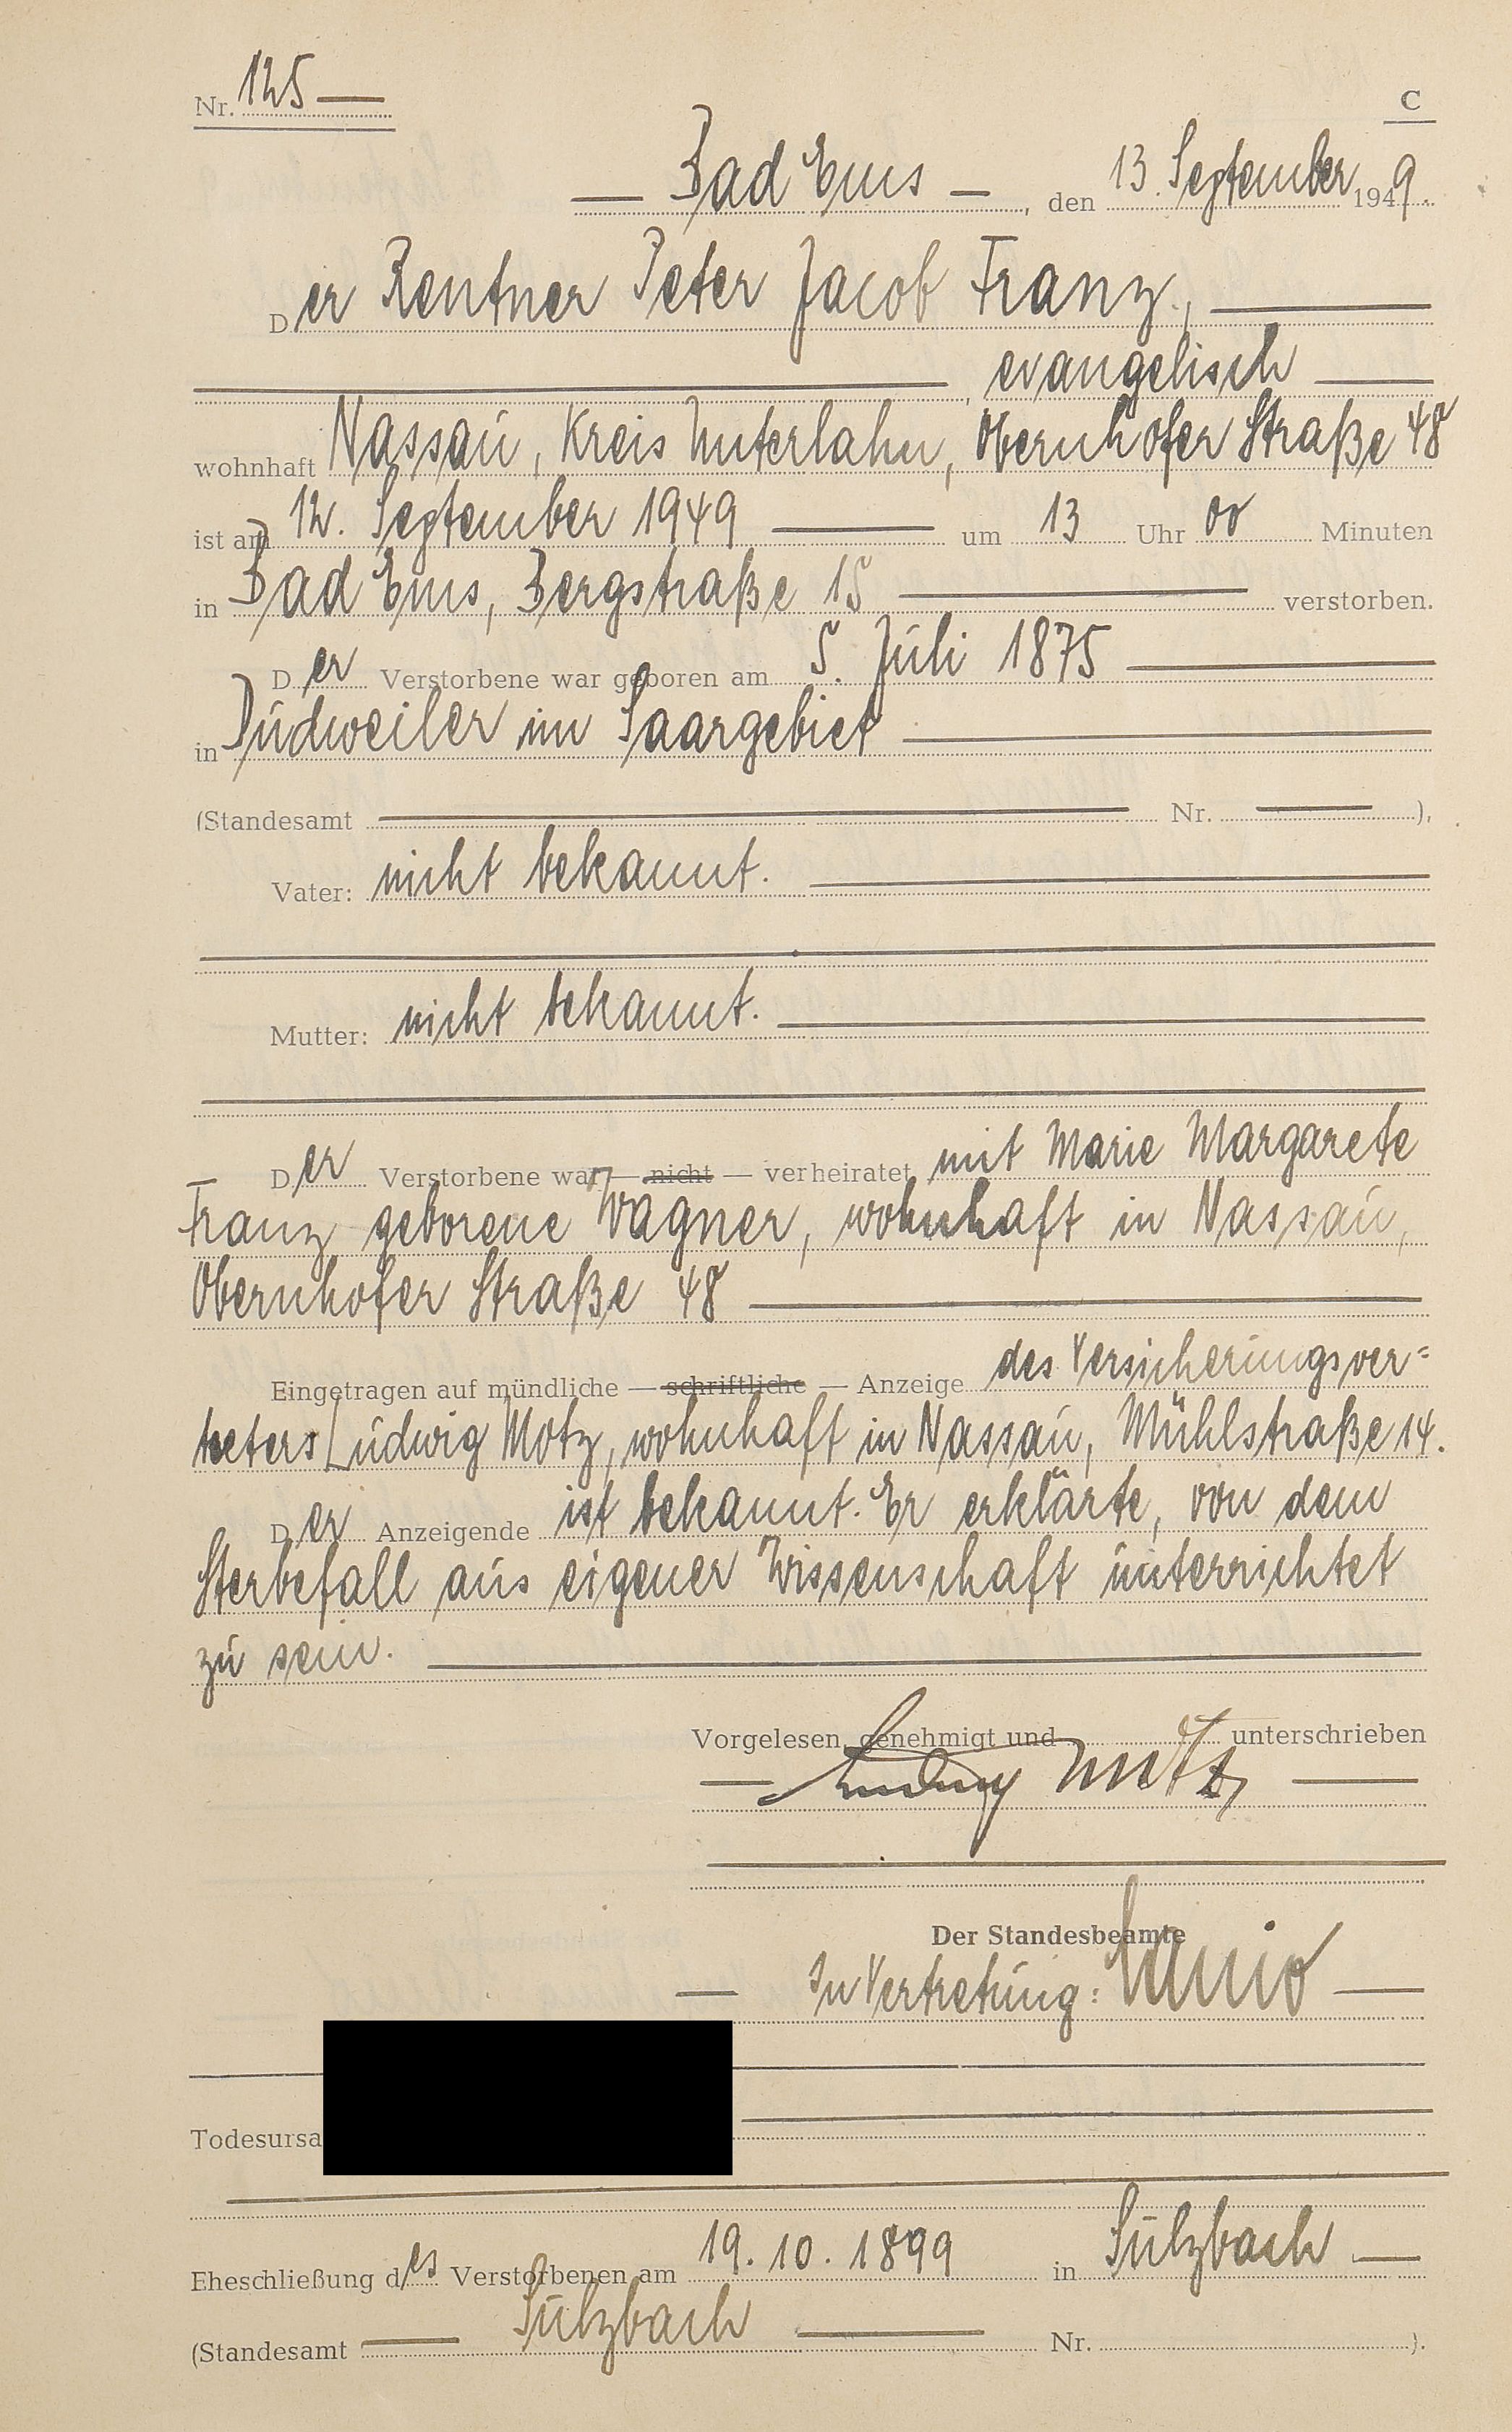 Nr. 125 —
C
— Bad Ems —, den 13. September 1949.
Der Rentner Peter Jacob Franz,
, evangelisch
wohnhaft Nassau, Kreis Unterlahn, Obernhofer Straße 48
ist am 12. September 1949 — um 13 Uhr 00 Minuten
in Bad Ems, Bergstraße 15 — verstorben.
Der Verstorbene war geboren am 5. Juli 1875
in Dudweiler im Saargebiet
(Standesamt — Nr. — ),
Vater: nicht bekannt.
Mutter: nicht bekannt.
Der Verstorbene war — nicht — verheiratet mit Marie Margarete
Franz geborene Wagner, wohnhaft in Nassau,
Obernhofer Straße 48
Eingetragen auf mündliche — schriftliche — Anzeige des Versicherungsver=
treters Ludwig Motz, wohnhaft in Nassau, Mühlstraße 14.
Der Anzeigende ist bekannt. Er erklärte, von dem
Sterbefall aus eigener Wissenschaft unterrichtet
zu sein.
Vorgelesen, genehmigt und unterschrieben
— Ludwig Motz —
Der Standesbeamte
— In Vertretung: —
Todesursa
Eheschließung des Verstorbenen am 19.10.1899 in Sulzbach —
(Standesamt — Sulzbach — Nr. ).